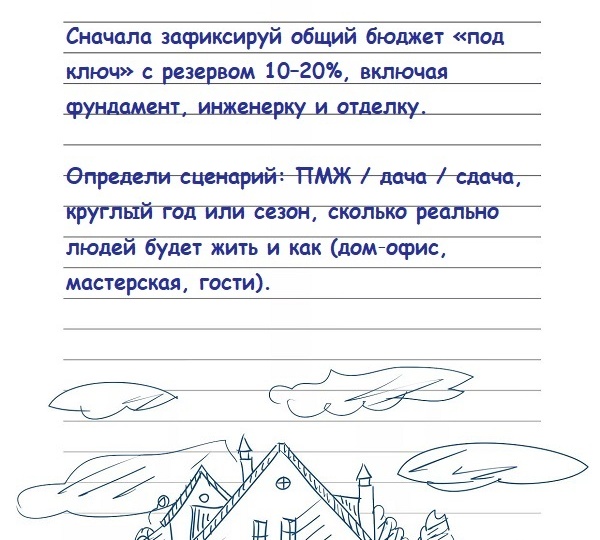 Сначала зафиксируй общий бюджет «под
ключ» с резервом 10–20%, включая
фундамент, инженерку и отделку.
Определи сценарий: ПМЖ / дача / сдача,
круглый год или сезон, сколько реально
людей будет жить и как (дом-офис,
мастерская, гости).